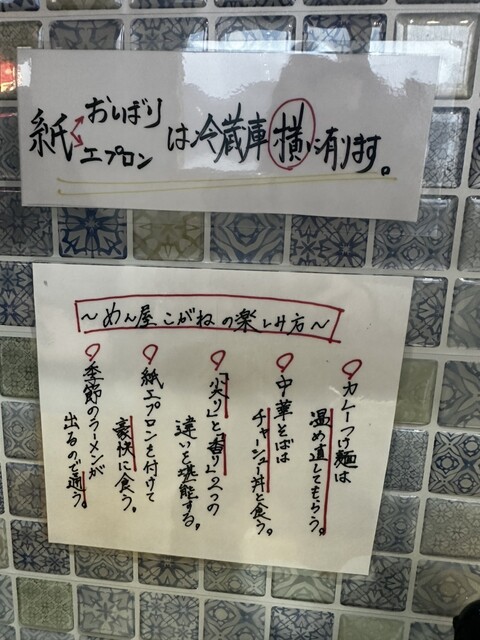 紙おしぼり
エプロン
は冷蔵庫横に有ります。
〜めん屋こがねの楽しみ方〜
カレーつけ麺は
温め直してもらう。
中華そばは
チャーシュー丼と食う。
「尖り」と「香り」2つの
違いを堪能する。
紙エプロンを付けて
豪快に食う。
季節のラーメンが
出るので通う。